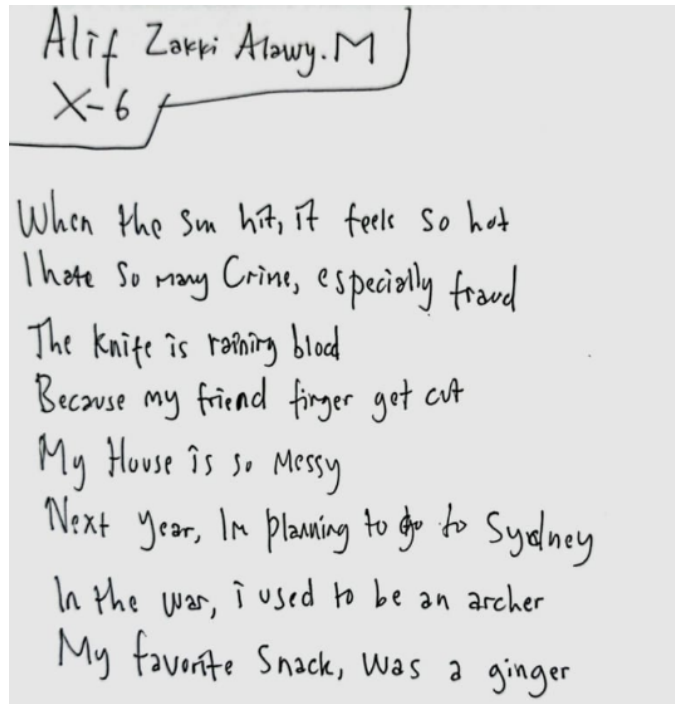 Alif Zakki Alawy.M
X-6
When the sun hit, it feels so hot
I hate so many Crine, especially fraud
The knife is raining blood
Because my friend finger get cut
My House is so Messy
Next year, Im planning to go to Sydney
In the war, i used to be an archer
My favorite Snack, was a ginger